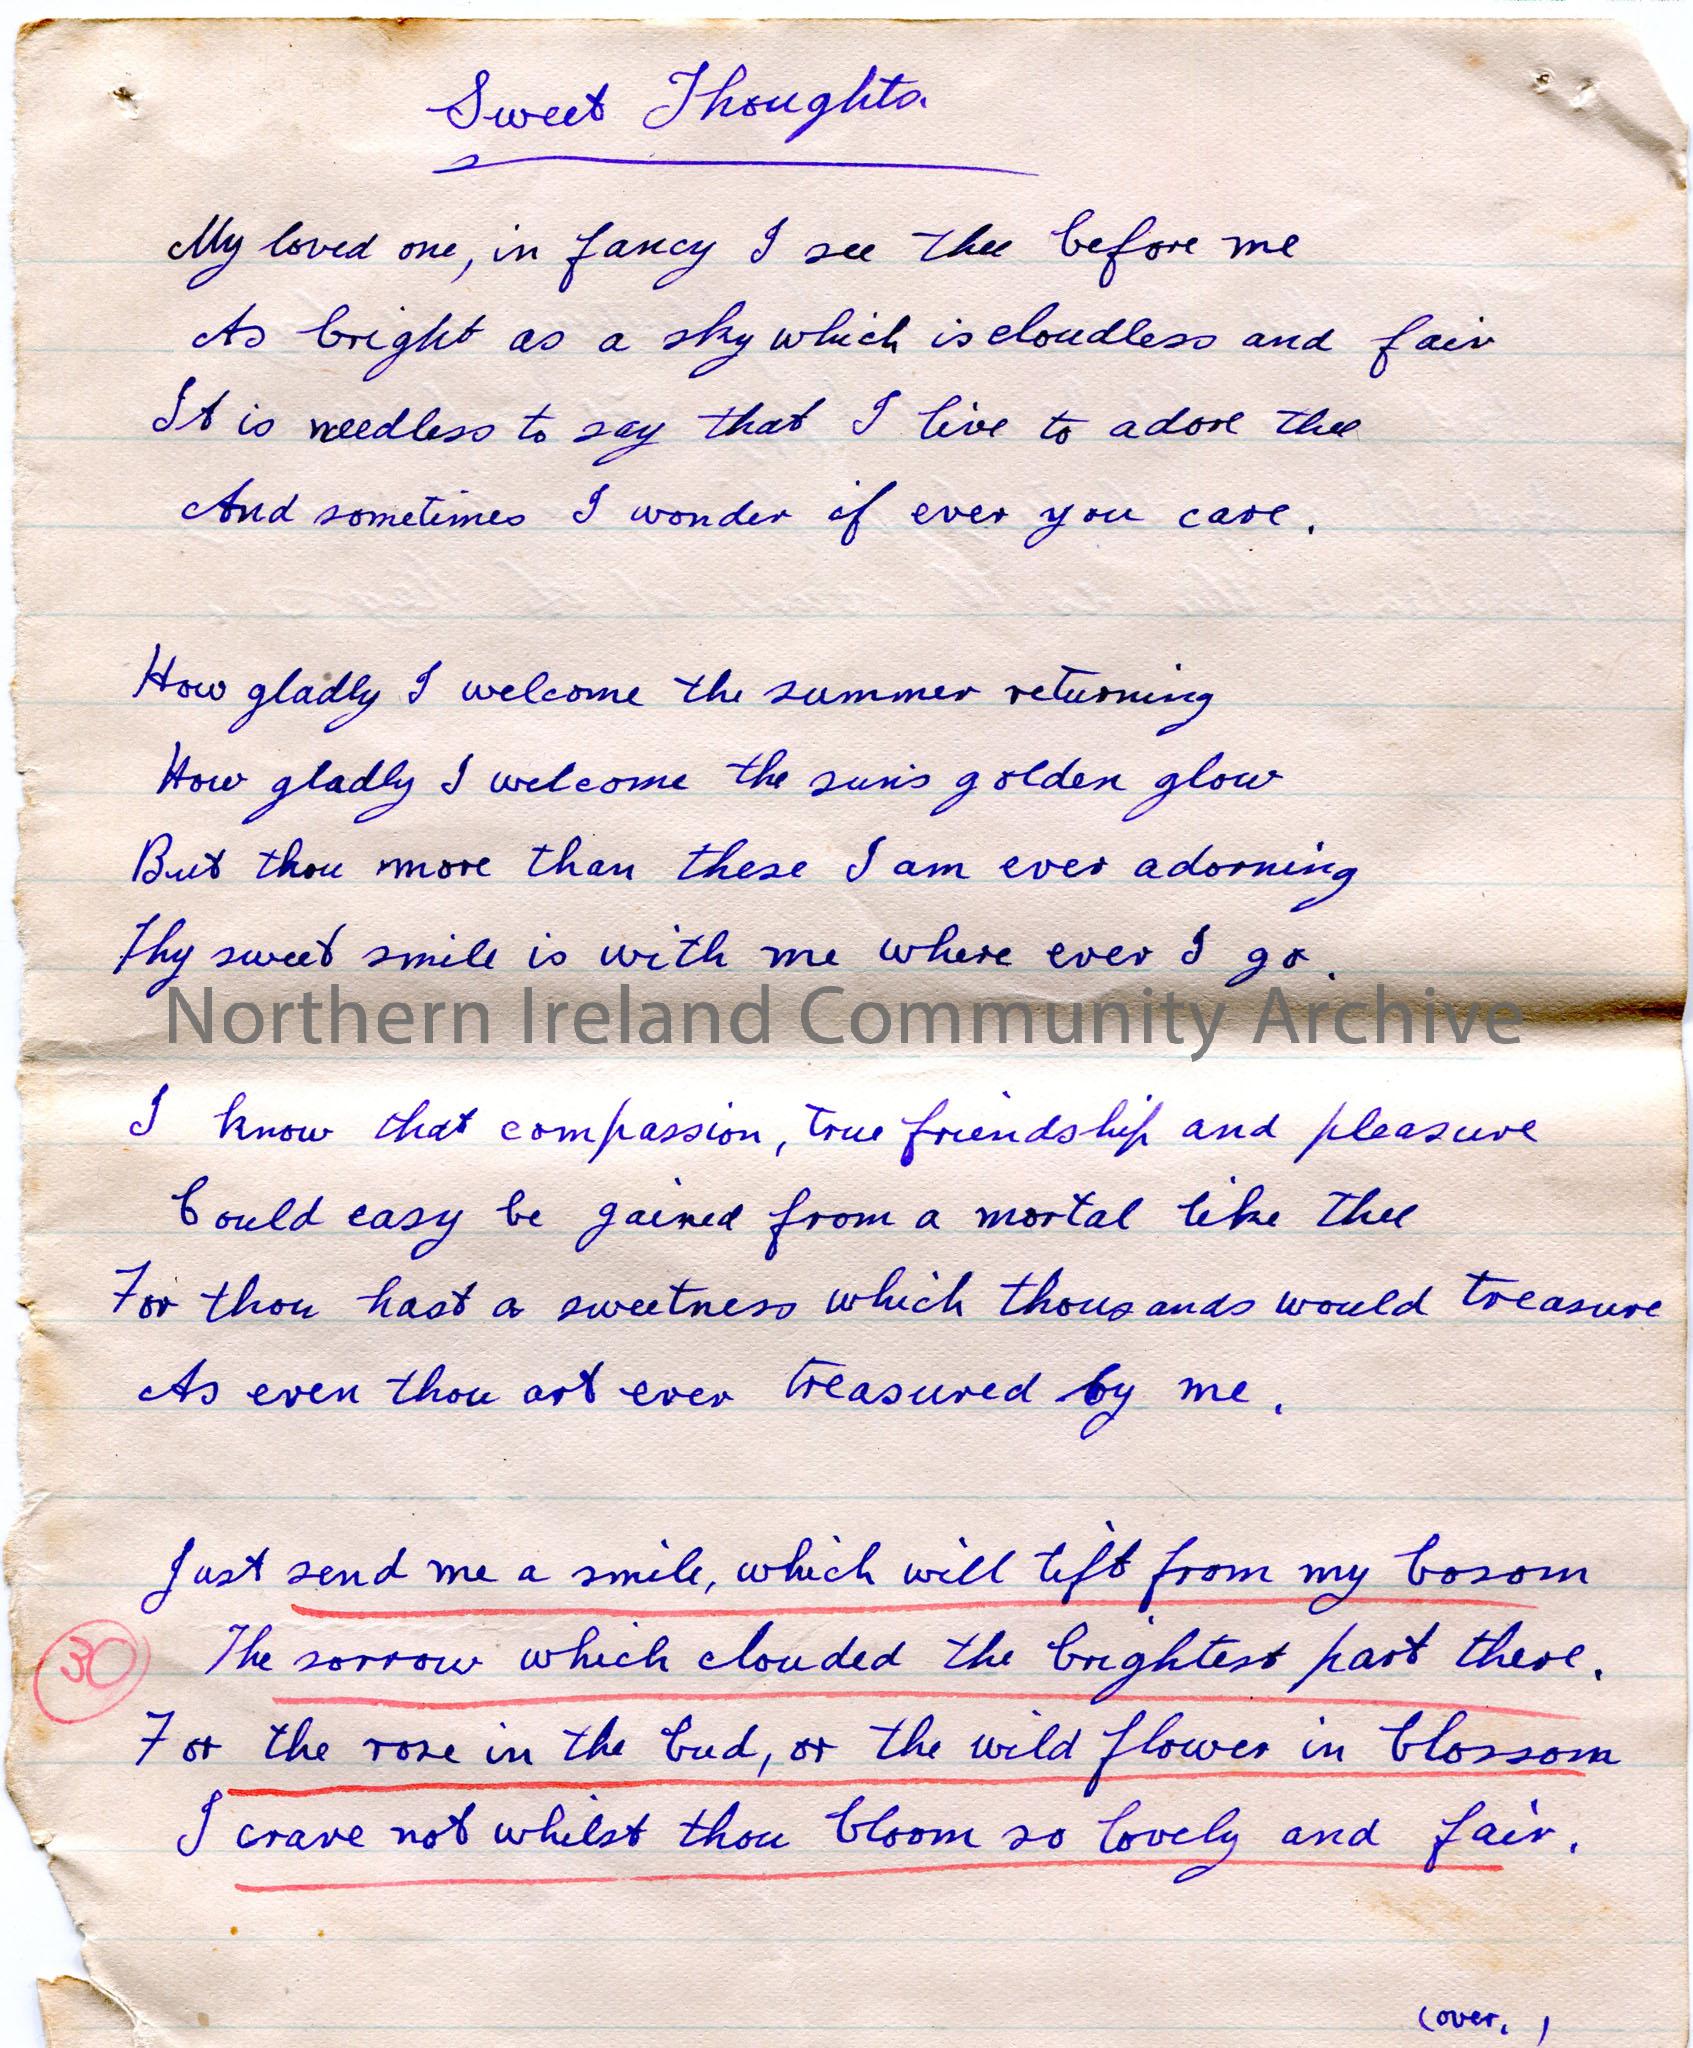 Sweet Thoughts.
My loved one, in fancy I see thee before me
As bright as a sky which is cloudless and fair
It is needless to say that I live to adore thee
And sometimes I wonder if ever you care.
How gladly I welcome the summer returning
How gladly I welcome the sun's golden glow
But thou more than these I am ever adorning
Thy sweet smile is with me where ever I go.
Northern Ireland Community Archive
I know that compassion, true friendship and pleasure
Could easy be gained from a mortal like thee
For thou hast a sweetness which thousands would treasure
As even thou art ever treasured by me.
Just send me a smile, which will lift from my bosom
The sorrow which clouded the brightest part there.
30
For the rose in the bud, or the wild flower in blossom
I crave not whilst thou bloom so lovely and fair.
(over.)